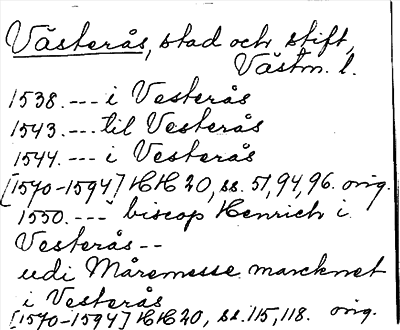 Västerås, stad och stift,
Västm. l.
1538. --- i Vesterås
1543. --- til Vesterås
1544. --- i Vesterås
[1570-1594] HH 20, ss. 51, 94, 96. orig.
1550. --- biscop Henrich i
Vesterås --
udi Måremesse marcknet
i Vesterås
[1570-1594] HH 20, ss. 115, 118. orig.